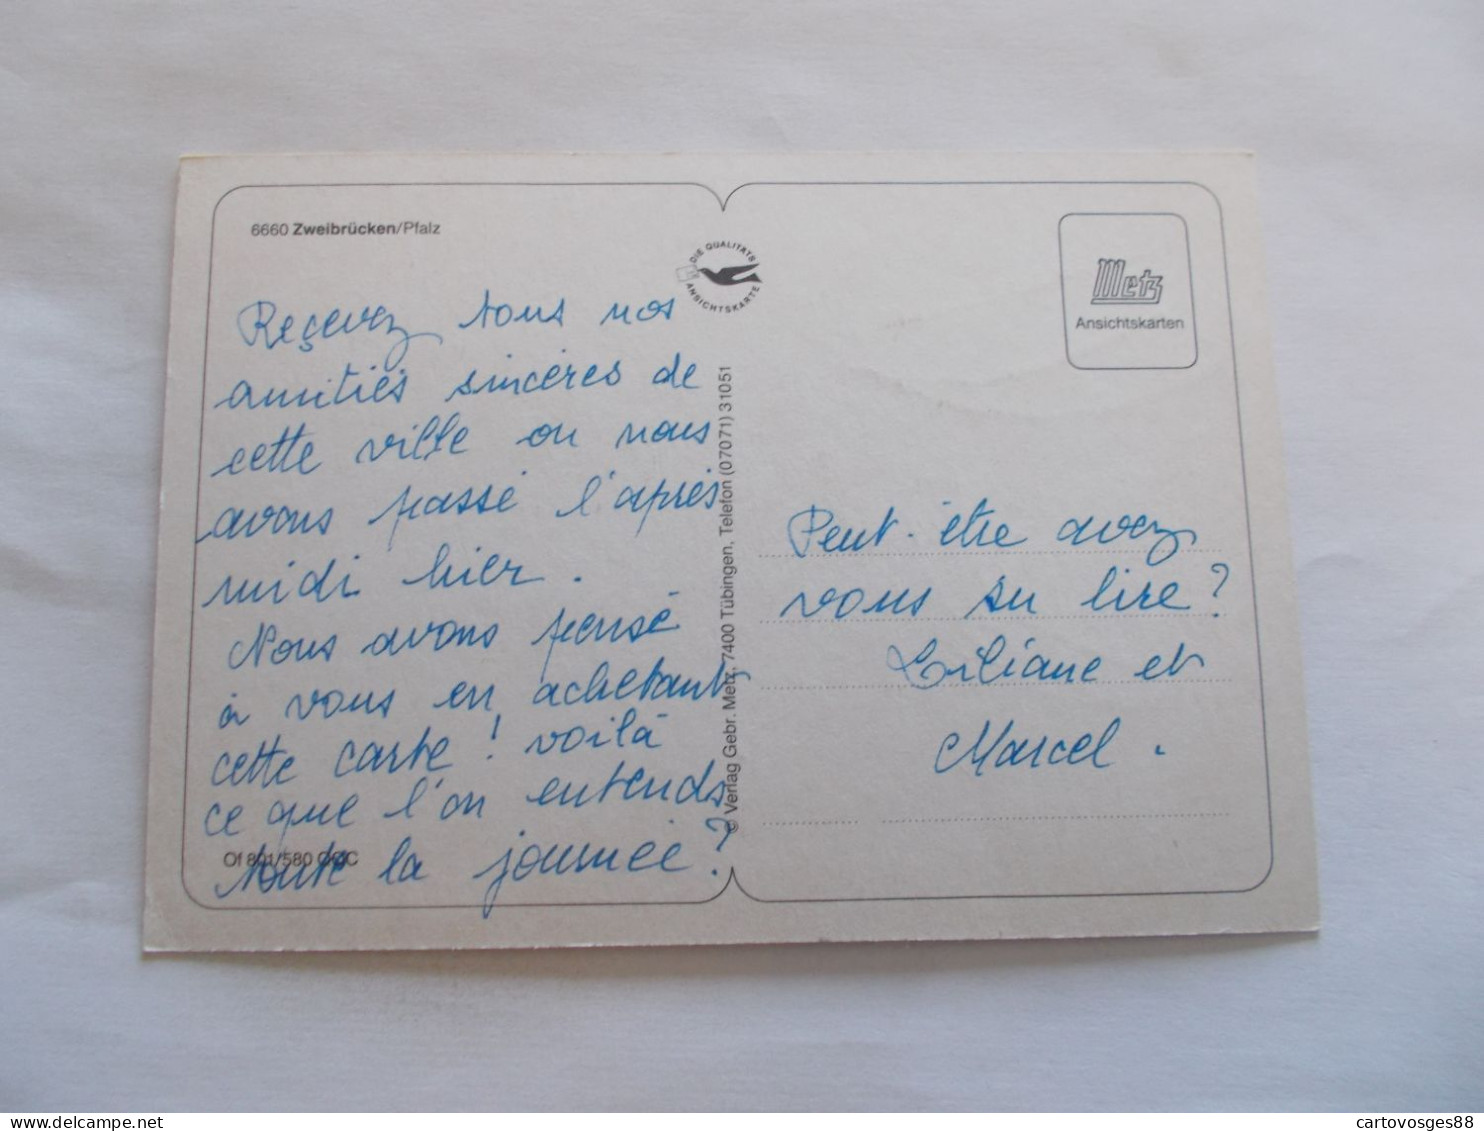 6660 Zweibrücken/Pfalz
DIE QUALITÄTS
ANSICHTSKARTE
Metz
Ansichtskarten
Reçevez tous nos
amitiés sincères de
cette ville ou nous
avons passé l'après
midi hier.
Nous avons pensé
à vous en achetant
cette carte! voilà
ce que l'on entends
toute la journée?
Of 801/580 CCC
© Verlag Gebr. Metz, 7400 Tübingen, Telefon (07071) 31051
Peut-être avez
vous su lire?
Liliane et
Marcel.
cartovosges88